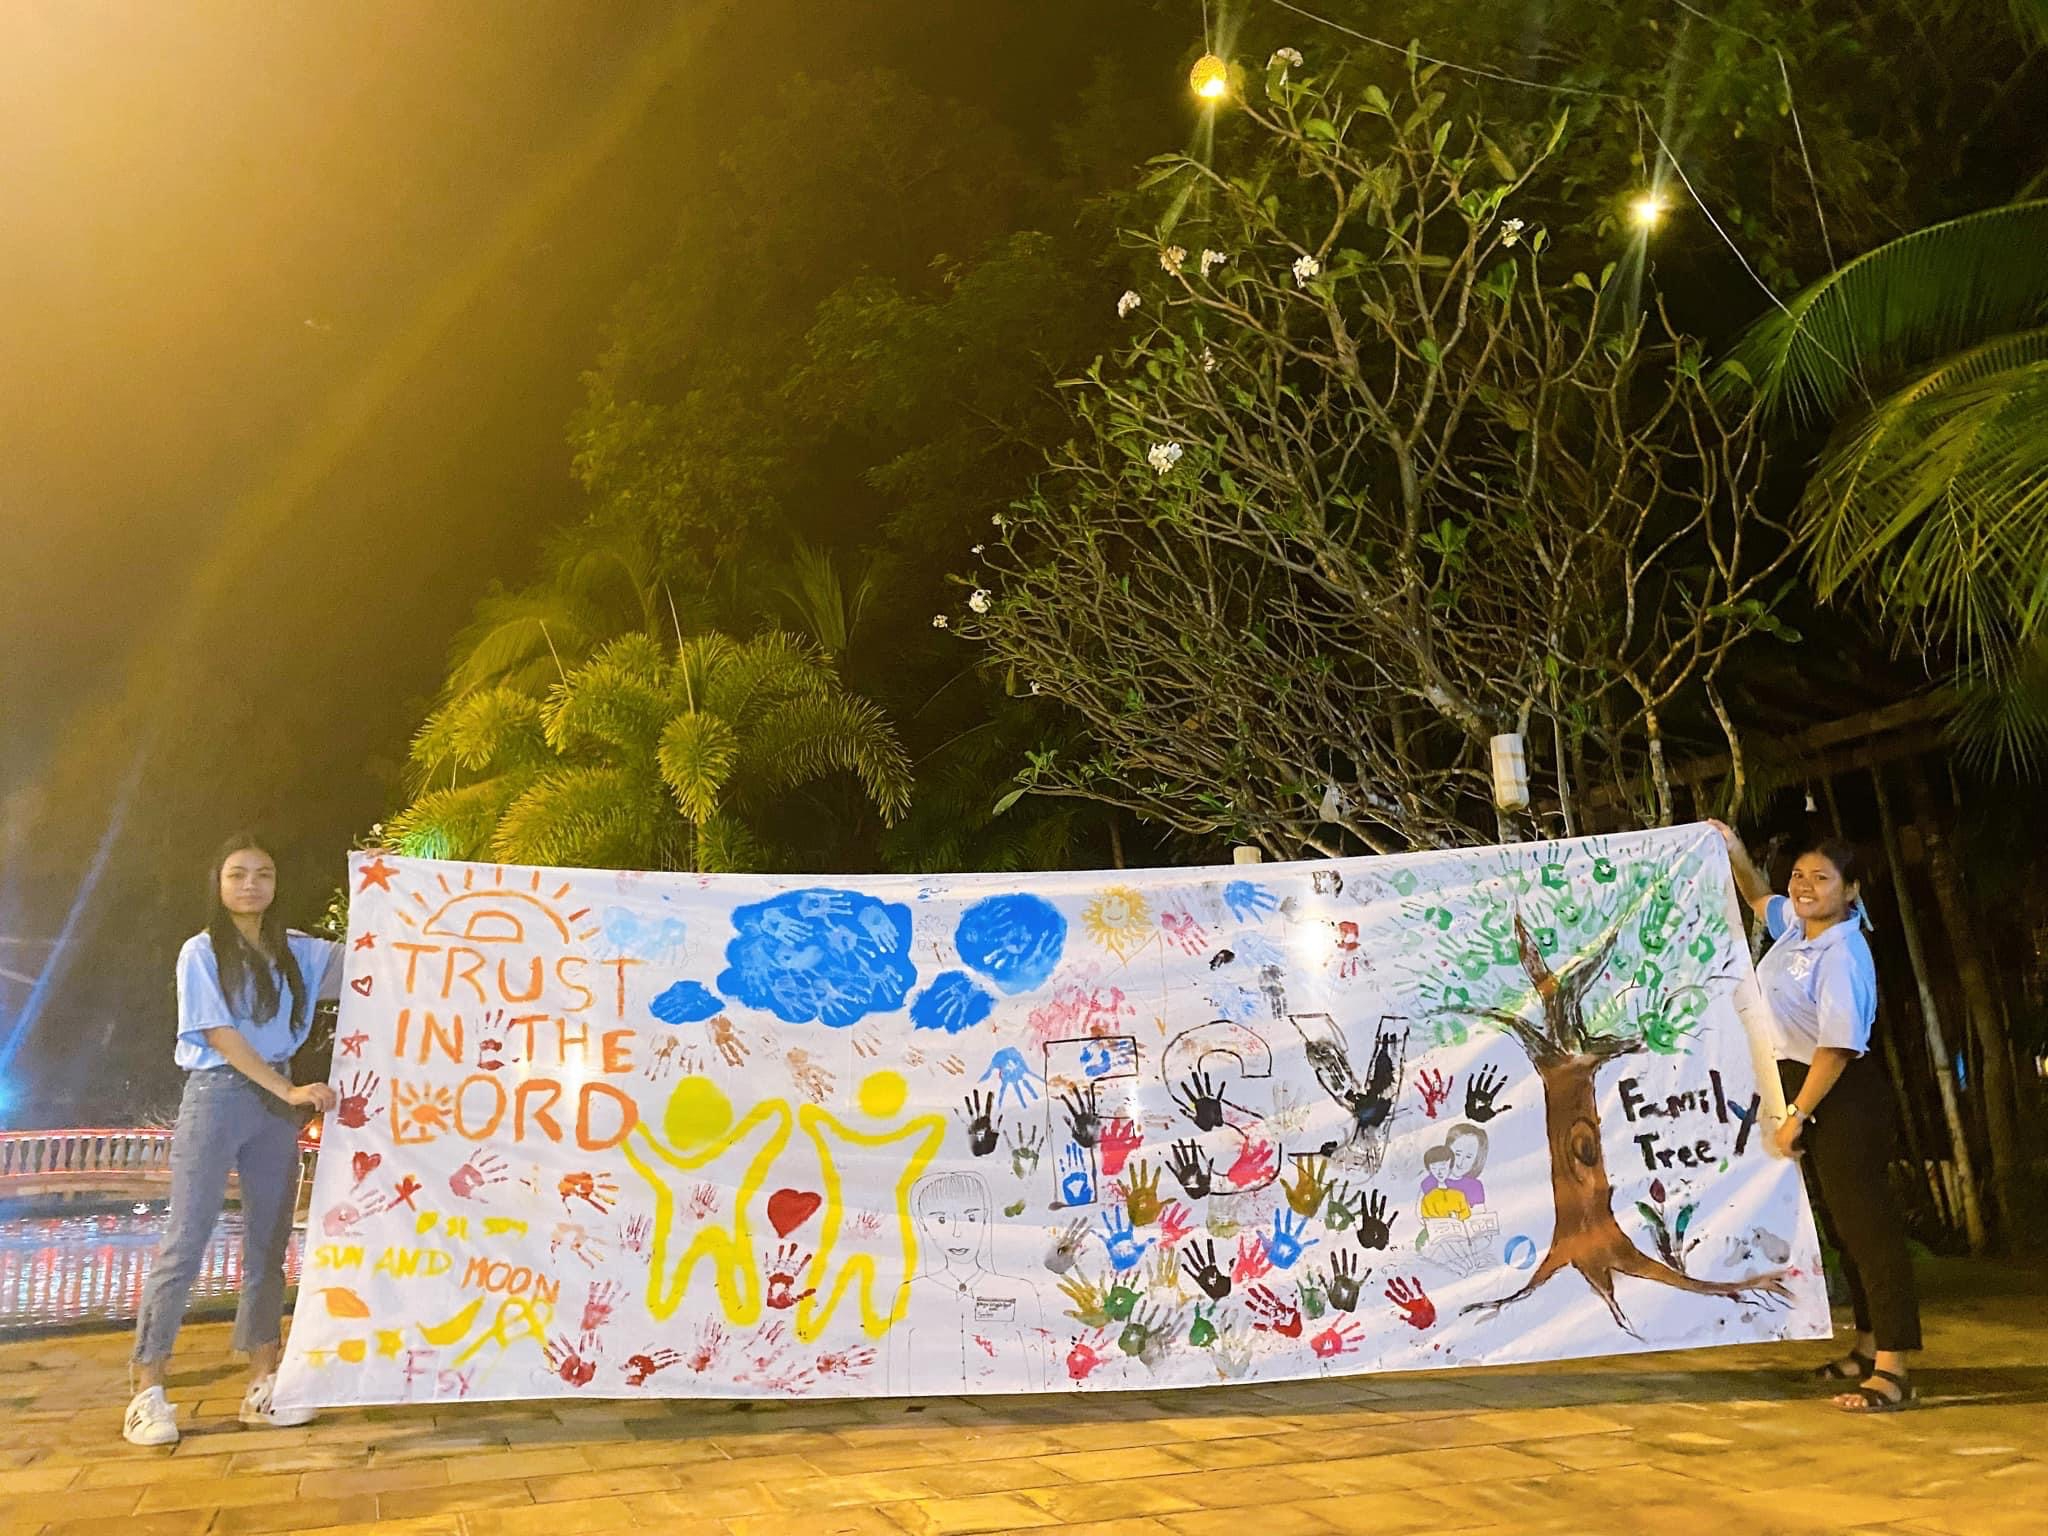 TRUST
IN THE
LORD
SUN AND MOON
FSY
FSY
Family
Tree
FSY